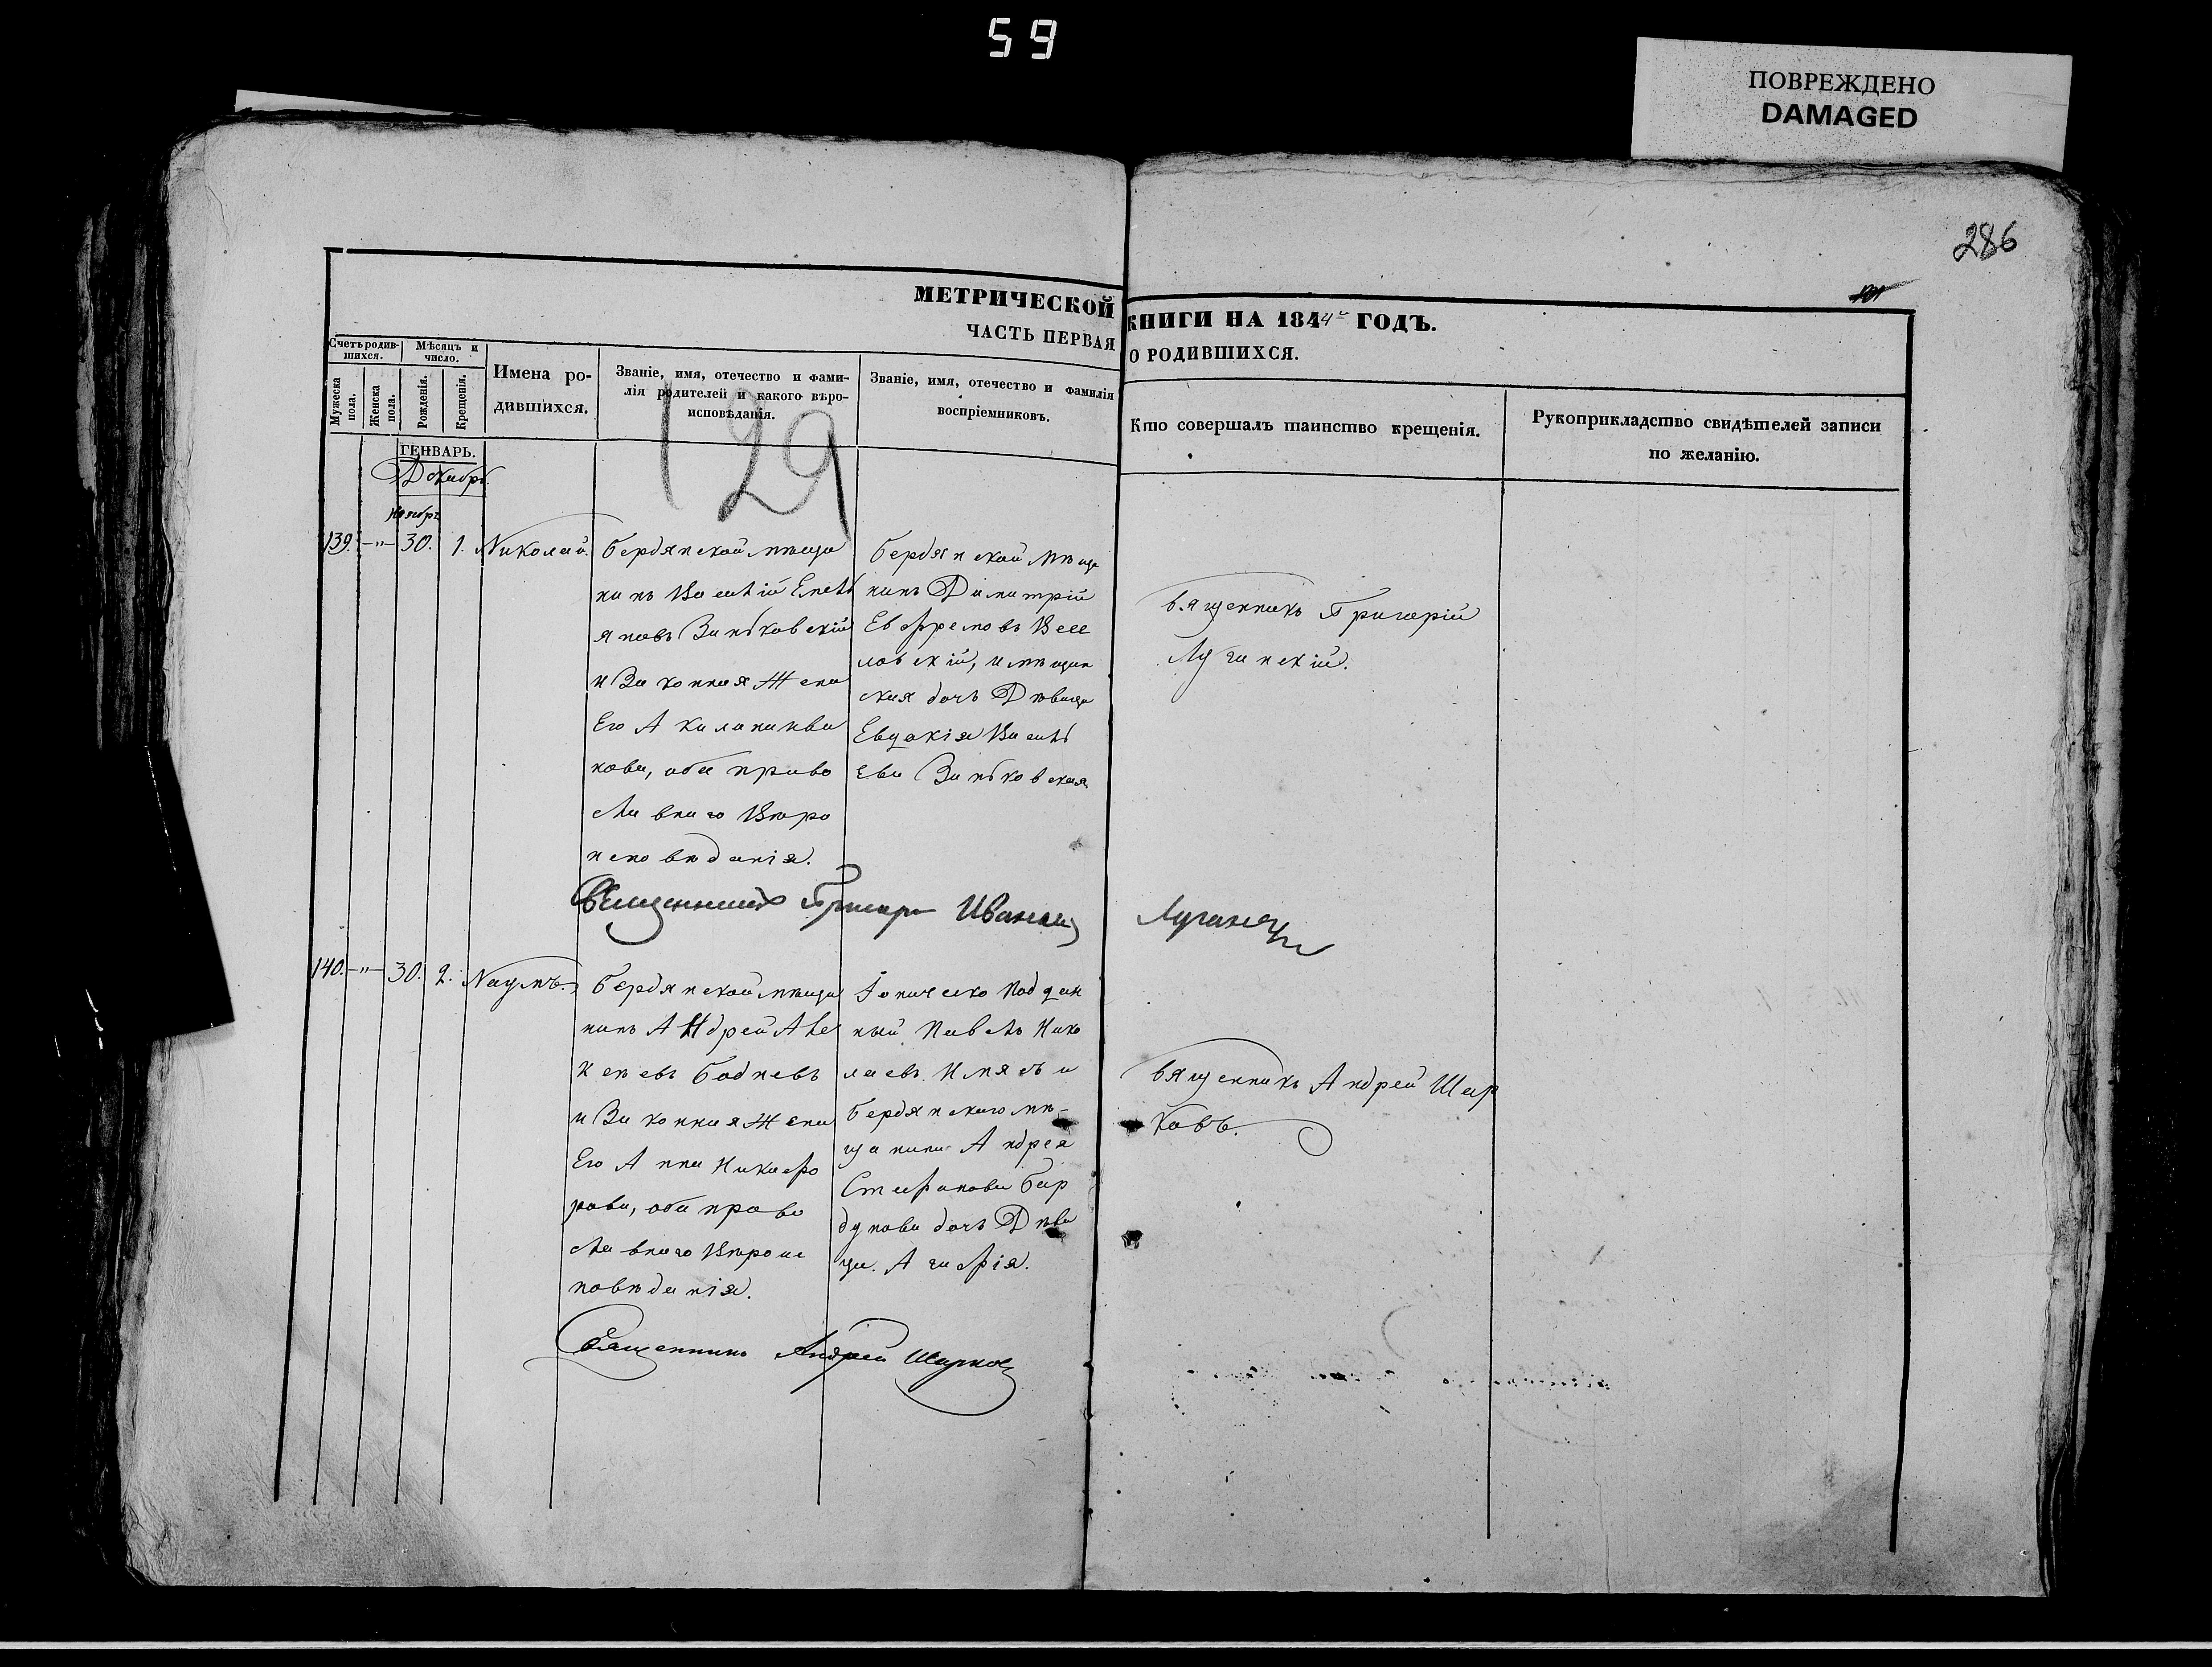 59
ПОВРЕЖДЕНО
DAMAGED
286
МЕТРИЧЕСКОЙ КНИГИ НА 1844й ГОДЪ.
ЧАСТЬ ПЕРВАЯ О РОДИВШИХСЯ.
Счетъ родив-
шихся.
Мужеска пола.
Женска пола.
Мѣсяцъ и
число.
Рожденія.
Крещенія.
Имена ро-
дившихся.
Званіе, имя, отечество и фами-
лія родителей и какого вѣро-
исповѣданія.
Званіе, имя, отечество и фамилія
воспріемниковъ.
Кто совершалъ таинство крещенія.
Рукоприкладство свидѣтелей записи
по желанію.
129
ГЕНВАРЬ.
Декабрь.
Ноябрь
139. -"- 30. 1. Николай.
Бердянской мѣща
нинъ Василій Емелья
новъ Заньковскій
и Законная Жена
Его Акилина
кова, оба право
славнаго Вѣро
исповѣданія.
Бердянской мѣща
нинъ Димитрій
Евфремовъ
ловскій, и мѣщан
ская дочь Дѣвица
Евдокія Василь
ева Заньковская
Священникъ Григорій
Лучинскій.
Священникъ Григорій Иванов
140. -"- 30. 2. Наумъ.
Бердянской мѣща
нинъ Андрей Але
ксѣевъ Бодневъ
и Законная Жена
Его Анна Никифо
рова, оба право
славнаго Вѣроис
повѣданія.
Іоническо поддан
ный Павелъ Нико
лаевъ и
Бердянскаго мѣ-
щанина Андрея
Стефанова Бар
дунова дочь Дѣви
ца Агафія.
Священникъ Андрей Шар
ковъ.
Священникъ Андрей Шарковъ